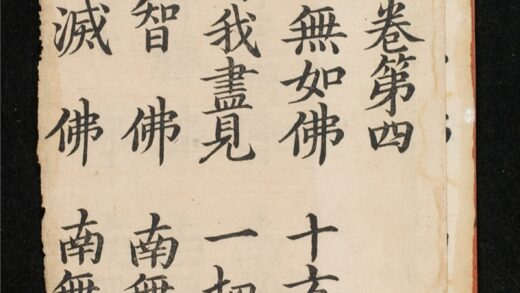 卷第四
無如佛 十方
我盡見 一切
智佛 南無
滅佛 南無